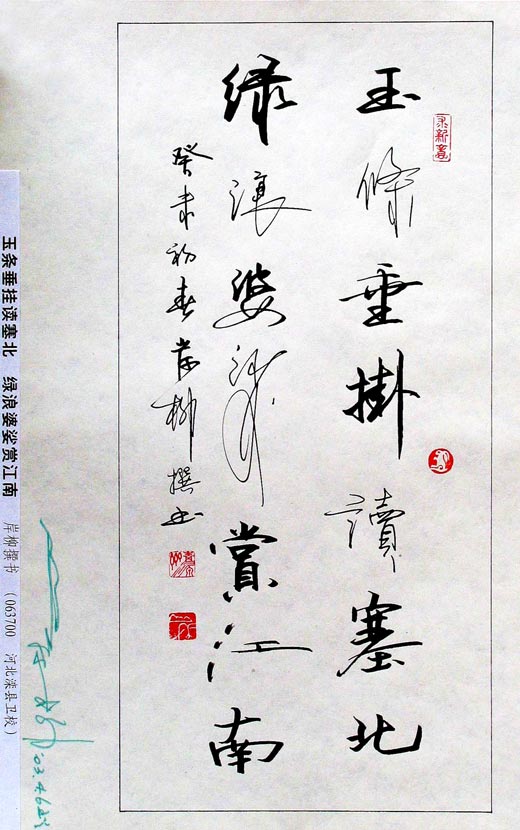 玉條垂掛讀塞北
綠浪婆娑賞江南
癸未初春岸柳撰书
玉条垂挂读塞北 绿浪婆娑赏江南 岸柳撰书 (063700 河北滦县卫校)